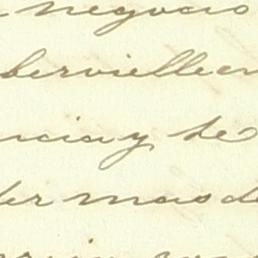 negocio
bervielle en
ncia y te
der mas de